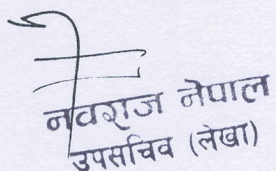 नवराज नेपाल
उपसचिव (लेखा)